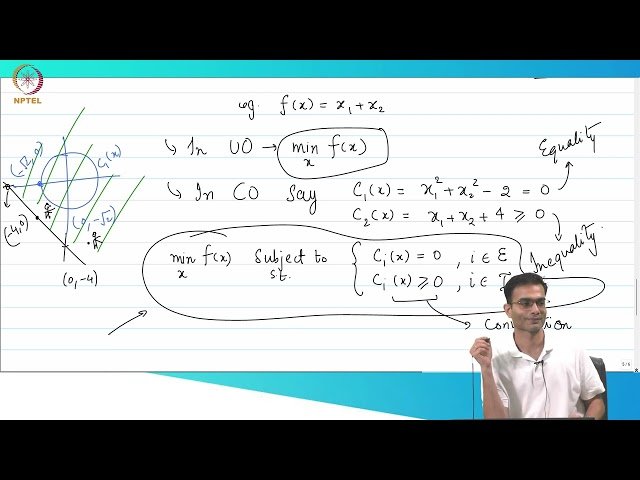 NPTEL
eg. f(x) = x₁ + x₂
↳ In UO → min f(x)
x
↳ In CO Say C₁(x) = x₁² + x₂² - 2 = 0
C₂(x) = x₁ + x₂ + 4 ≥ 0
Equality
Inequality.
min f(x) Subject to { Cᵢ(x) = 0 , i ∈ Ɛ
x s.t. Cᵢ(x) ≥ 0 , i ∈ I
(-√2, 0)
C₁(x)
(0, -√2)
(-4, 0)
(0, -4)